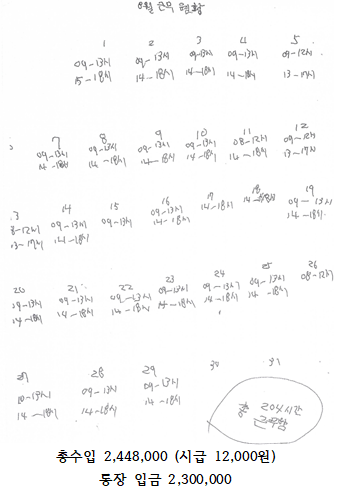 8월 근무 현황
1 2 3 4 5
09-13시 09-13시 09-13시 09-13시 09-12시
15-18시 14-18시 14-18시 14-18시 13-17시
7 8 9 10 11 12
09-13시 09-13시 09-13시 09-13시 08-12시 09-12시
14-18시 14-18시 14-18시 14-18시 14-18시 13-17시
3 14 15 16 17 18 19
8-12시 09-13시 09-13시 09-13시 14-18시 14-18시 09-13시
13-17시 14-18시 14-18시 14-18시
20 21 22 23 24 25 26
09-13시 09-13시 09-13시 09-13시 09-13시 09-13시 08-12시
14-18시 14-18시 14-18시 14-18시 14-18시 14-18시
28 29 30 31
10-13시 09-13시 09-13시
14-18시 14-18시 14-18시
총 204시간
근무함
총수입 2,448,000 (시급 12,000원)
통장 입금 2,300,000